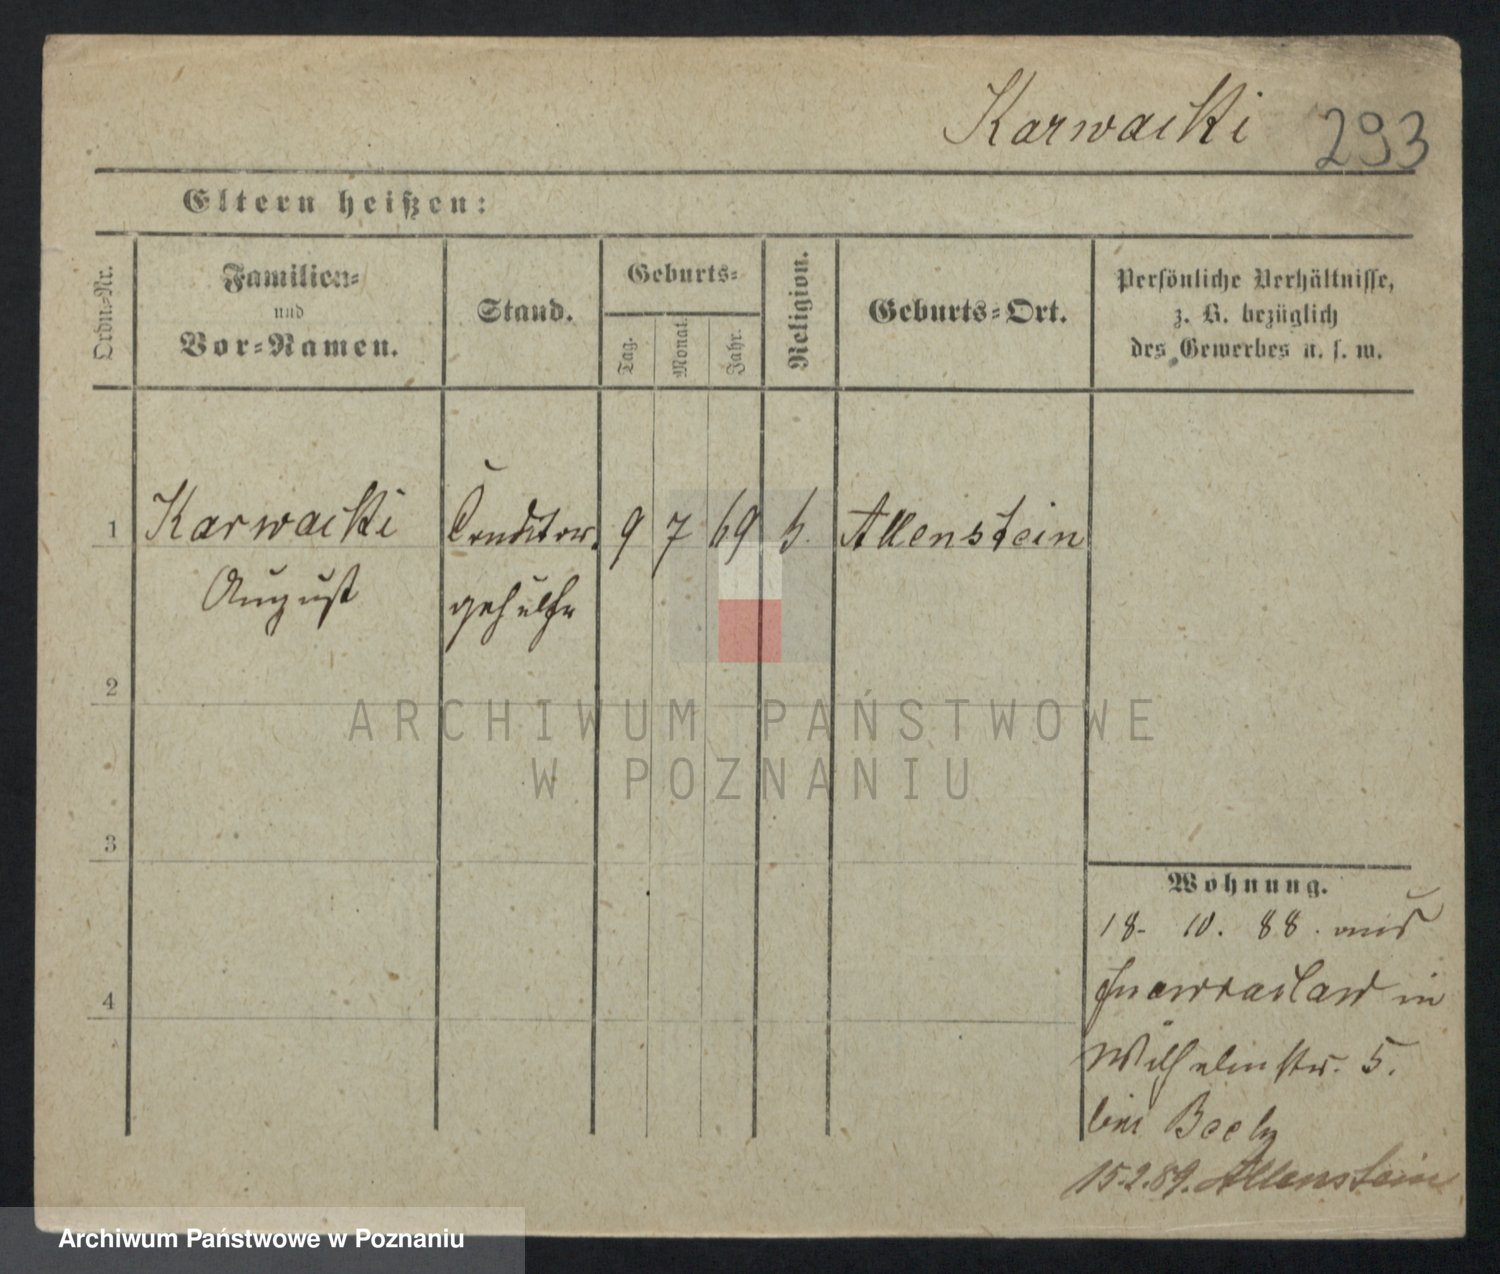 Karwacki 293
Eltern heißen:
Ordn.-Nr.
Familien-
und
Vor-Namen.
Stand.
Geburts-
Tag.
Monat.
Jahr.
Religion.
Geburts-Ort.
Persönliche Verhältnisse,
z. B. bezüglich
des Gewerbes u. s. w.
1 Karwacki Conditor 9 7 69 k. Allenstein
August gehülfe
2
3
4
Wohnung.
18. 10. 88. aus
Inowrazlaw in
Wilhelmstr. 5.
bei Beely
15.2.89. Allenstein
ARCHIWUM PAŃSTWOWE
W POZNANIU
Archiwum Państwowe w Poznaniu